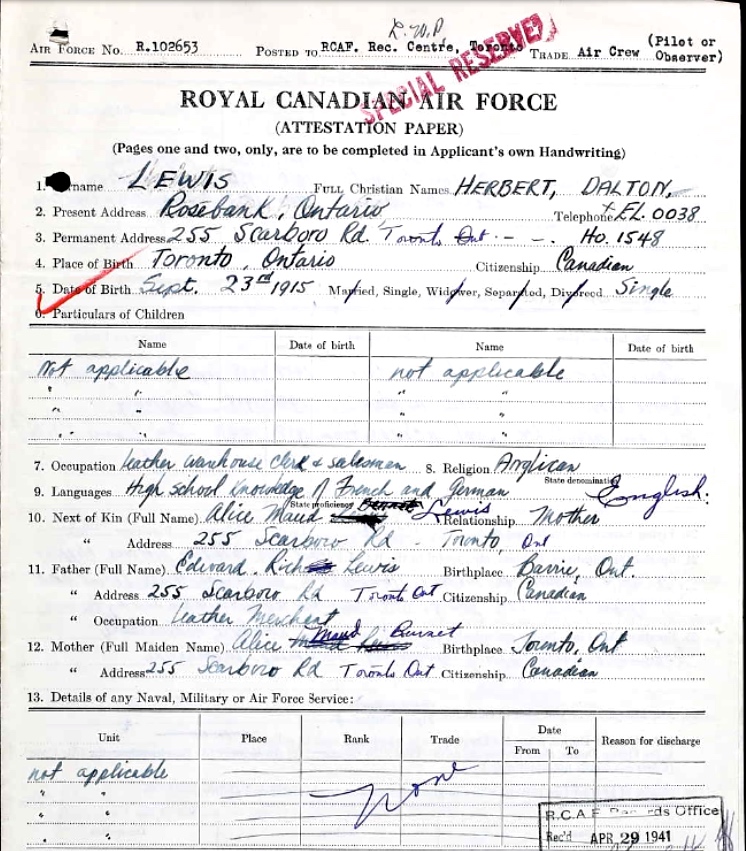 L.W.P.
AIR FORCE NO. R.102653 POSTED TO RCAF. Rec. Centre, Toronto TRADE Air Crew (Pilot or Observer)
SPECIAL RESERVE
ROYAL CANADIAN AIR FORCE
(ATTESTATION PAPER)
(Pages one and two, only, are to be completed in Applicant's own Handwriting)
1. name LEWIS FULL CHRISTIAN NAMES HERBERT, DALTON,
2. Present Address Rosebank, Ontario Telephone EL. 0038
3. Permanent Address 255 Scarboro Rd. Toronto Ont. - -. Ho. 1548
4. Place of Birth Toronto, Ontario Citizenship Canadian
5. Date of Birth Sept. 23rd 1915 Married, Single, Widower, Separated, Divorced Single
6. Particulars of Children
Name Date of birth Name Date of birth
Not applicable not applicable
" " " "
" " " "
" " " "
7. Occupation Leather warehouse clerk & salesman 8. Religion Anglican
State denomination
9. Languages High school knowledge of French and German English.
State proficiency
10. Next of Kin (Full Name) Alice Maud Lewis Relationship Mother
" Address 255 Scarboro Rd - Toronto, Ont
11. Father (Full Name) Edward Lewis Birthplace Barrie, Ont.
" Address 255 Scarboro Rd Toronto Ont Citizenship Canadian
" Occupation Leather Merchant
12. Mother (Full Maiden Name) Alice Maud Burnet Birthplace Toronto, Ont
" Address 255 Scarboro Rd Toronto Ont Citizenship Canadian
13. Details of any Naval, Military or Air Force Service:
Unit Place Rank Trade Date Reason for discharge
From To
not applicable
" " None
" "
" "
R.C.A.F. Records Office
Rec'd APR 29 1941